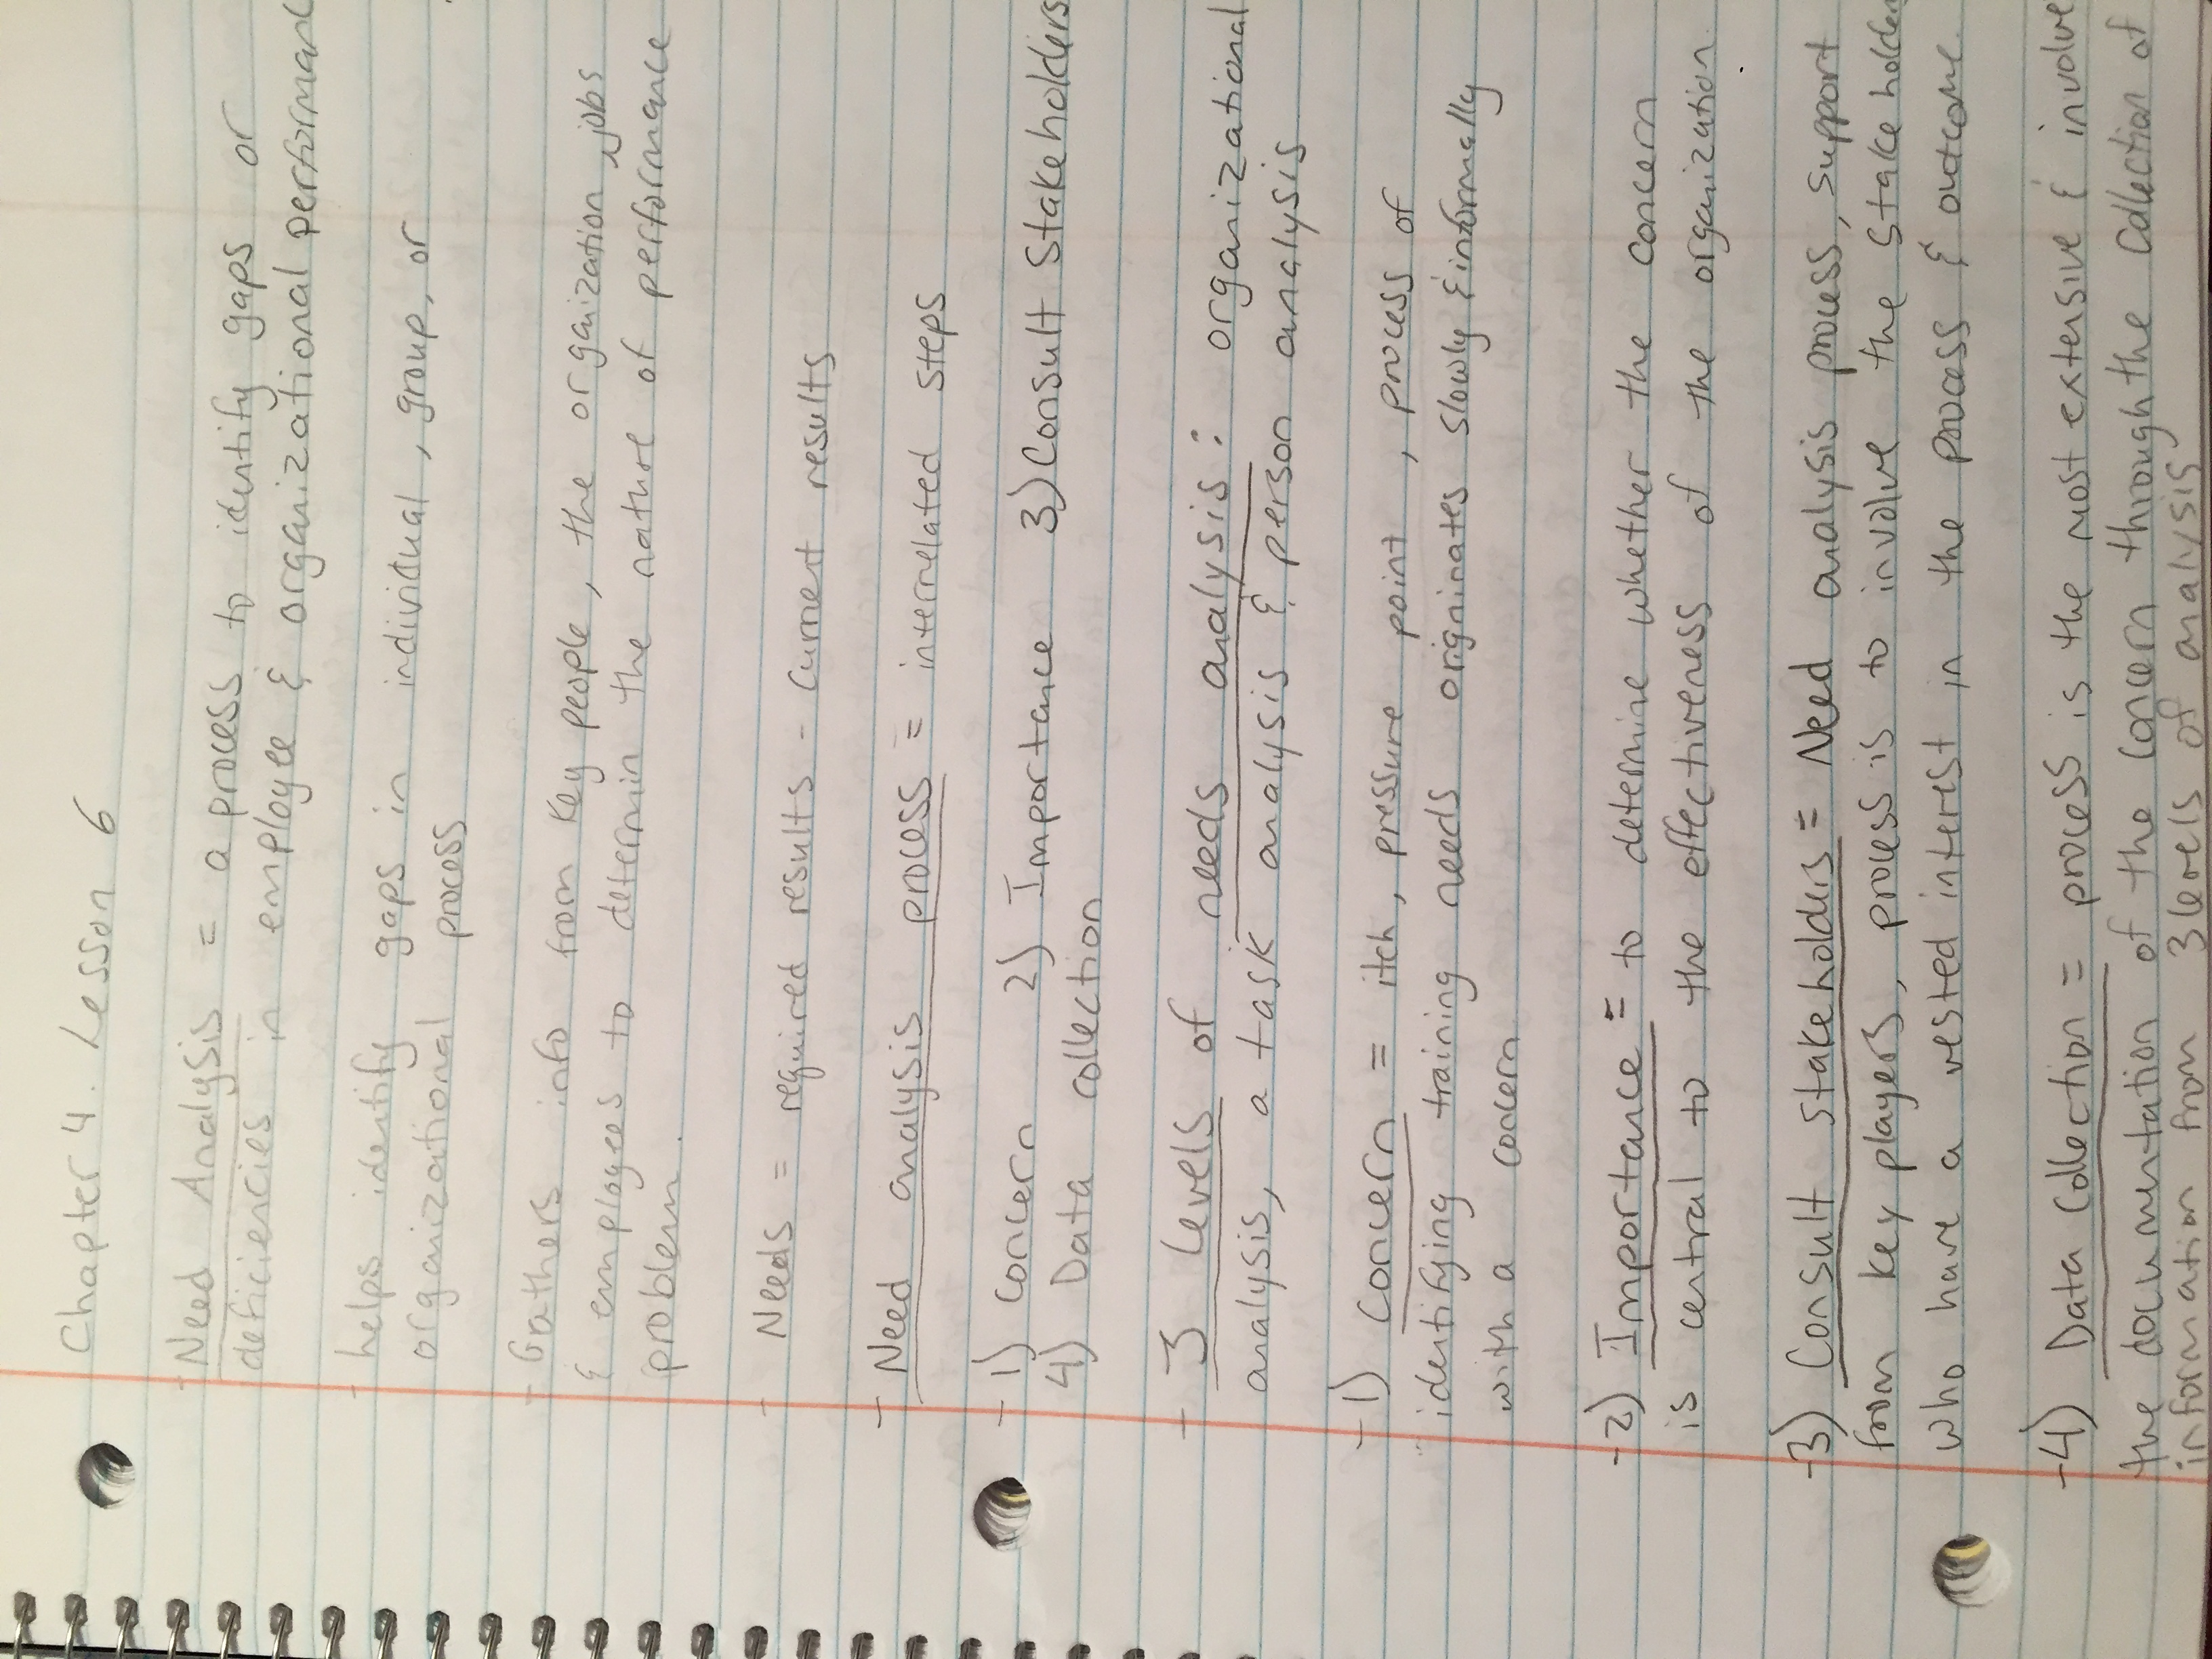 Chapter 4. Lesson 6
- Need Analysis = a process to identify gaps or
deficiencies in employee & organizational performan
- helps identify gaps in individual, group, or
organizational process
- Gathers info from key people, the organization jobs
& employees to determin the nature of performance
problem.
- Needs = required results - current results
- Need analysis process = interrelated steps
- 1) Concern 2) Importance 3) Consult Stakeholders
4) Data collection
- 3 Levels of needs analysis: organizational
analysis, a task analysis & person analysis
- 1) Concern = itch, pressure point, process of
identifying training needs originates slowly & informally
with a concern
- 2) Importance = to determine whether the concern
is central to the effectiveness of the organization.
- 3) Consult stakeholders = Need analysis process, support
from key players, process is to involve the stakeholder
who have a vested interest in the process & outcome.
- 4) Data Collection = process is the most extensive & involve
the documentation of the concern through the collection of
information from 3 levels of analysis